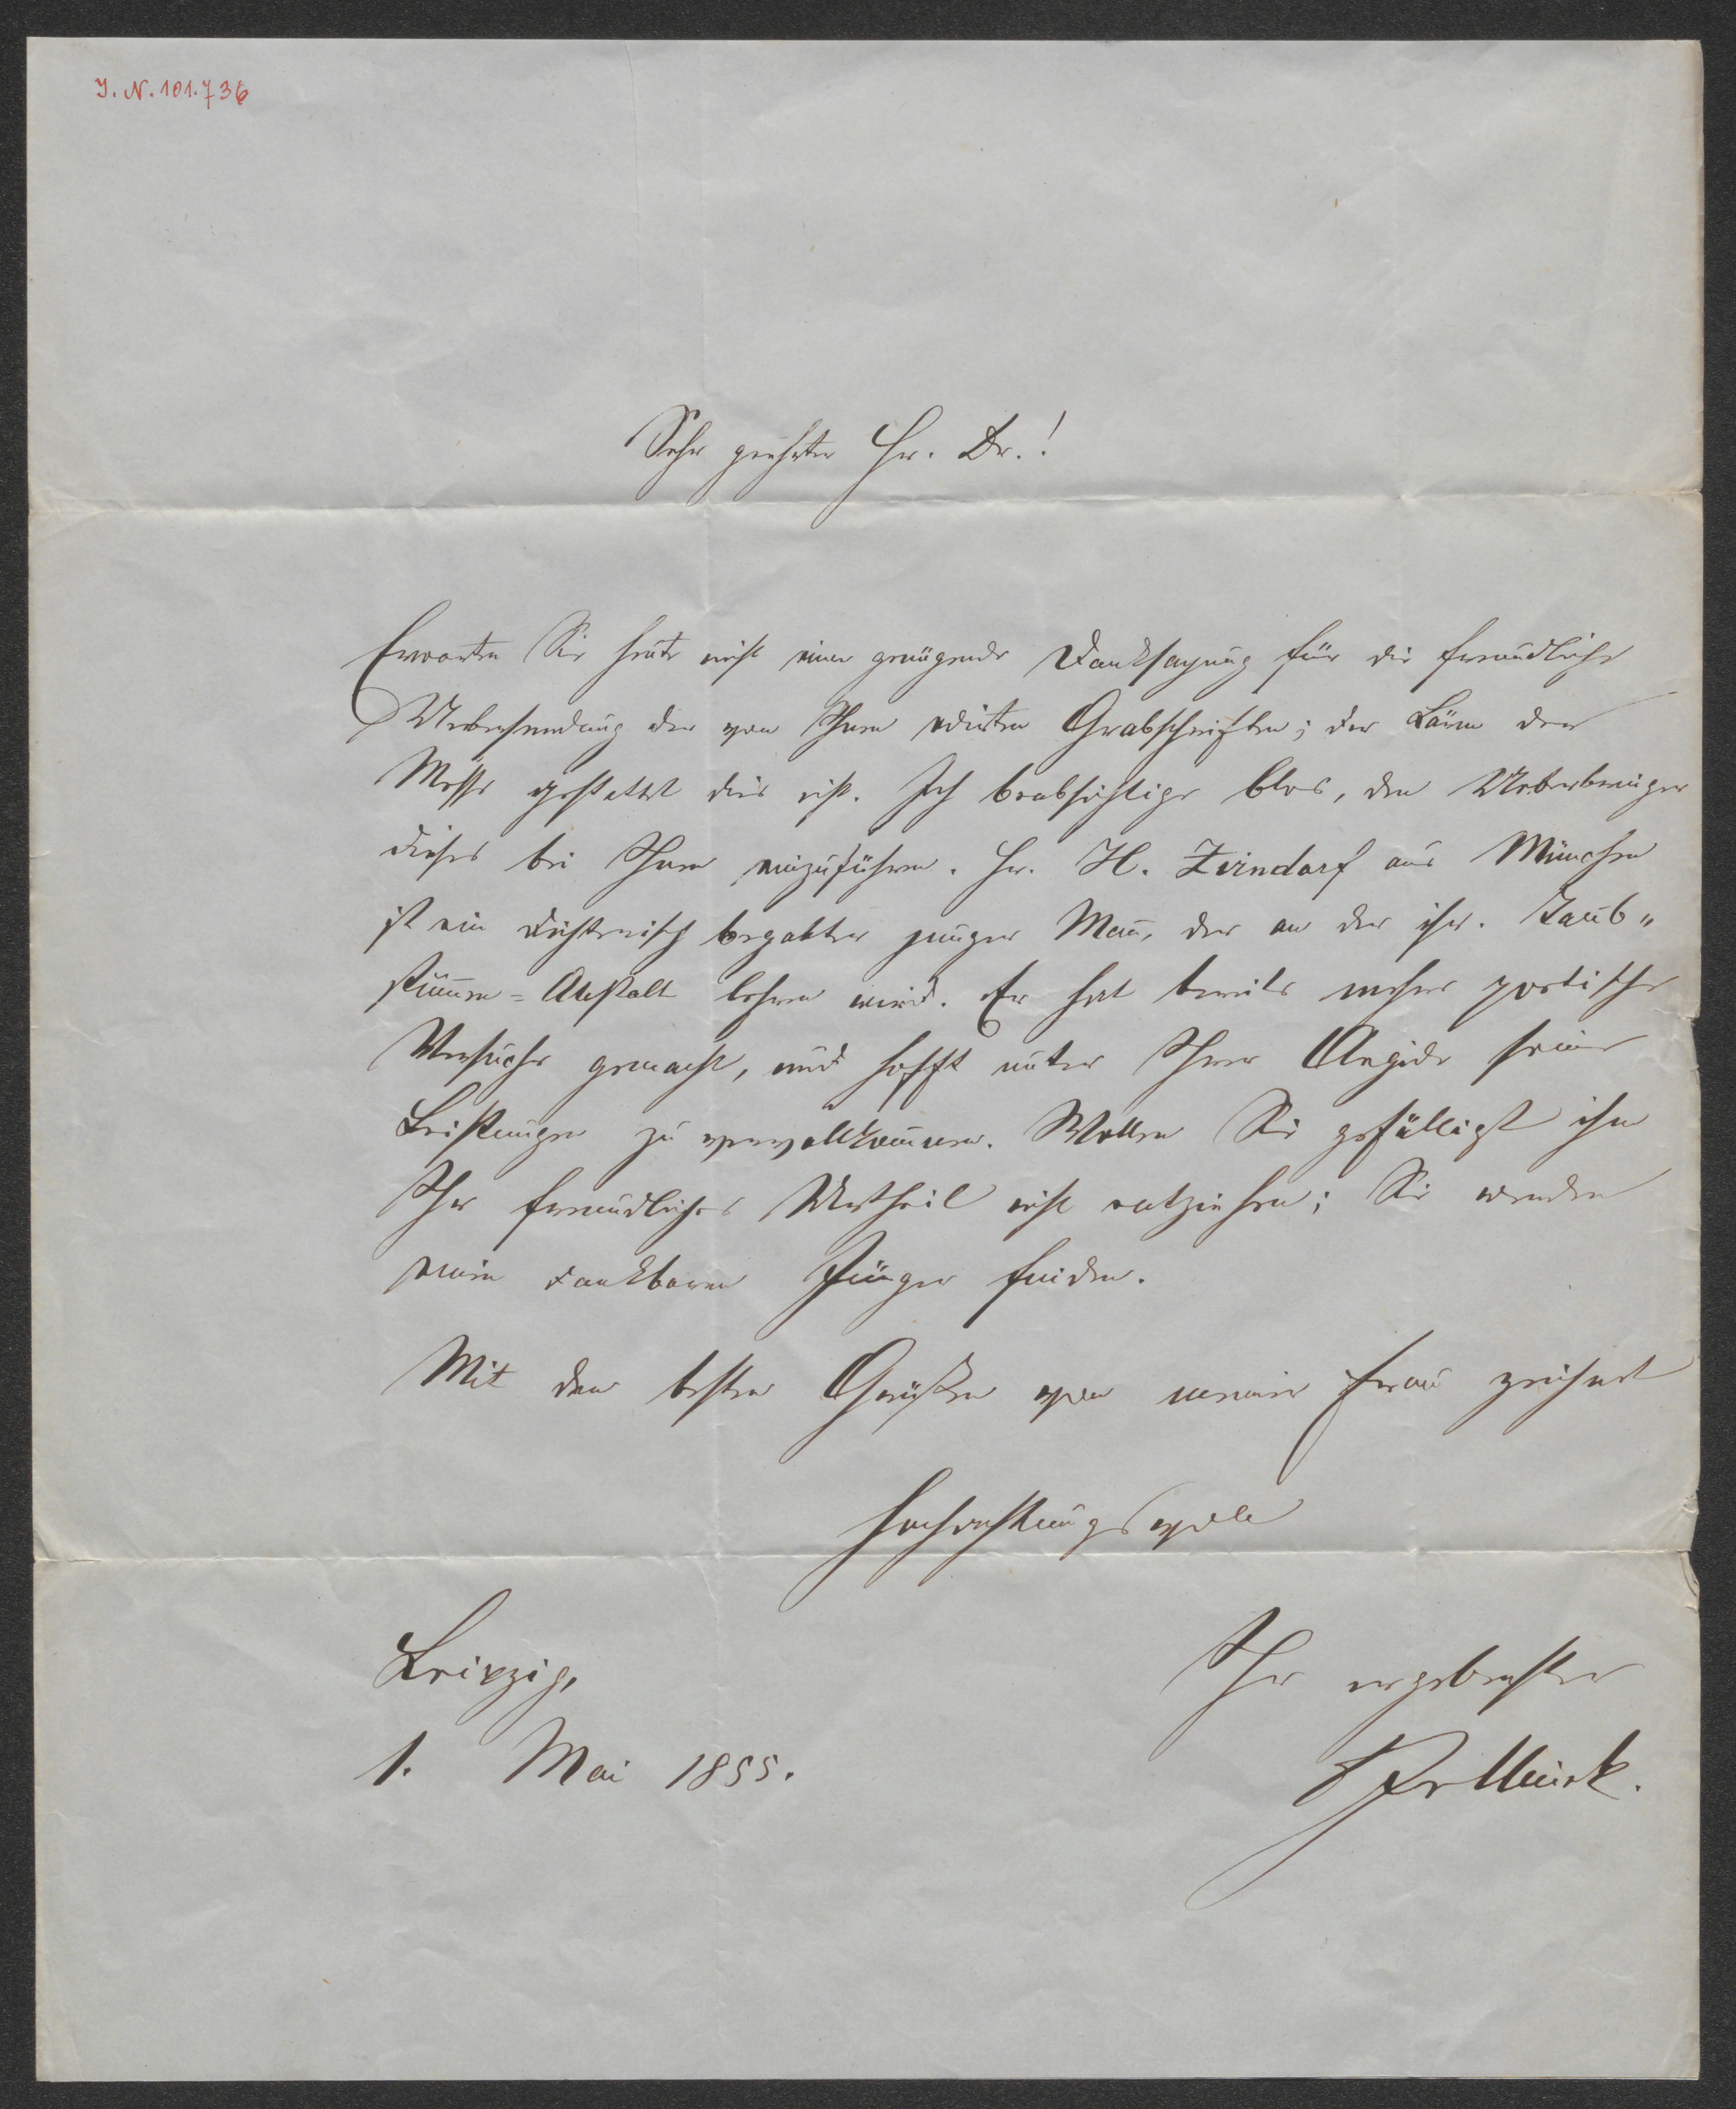 J. N. 101.736
Sehr geehrter Hr. Dr.!
Erwarten Sie heute nicht eine genügende Danksagung für die freundliche
Uebersendung der von Ihnen edirten Grabschriften; der Lärm der
Messe gestattet dies nicht. Ich beabsichtige blos, den Ueberbringer
dieses bei Ihnen einzuführen. Hr. H. Zirndorf aus München
ist ein dichterisch begabter junger Mañ, der an der isr. Taub„
stum̄en=Anstalt lehren wird. Er hat bereits mehre poetische
Versuche gemacht, und hofft unter Ihrer Aegide seine
Leistungen zu vervollkom̄nen. Wollen Sie gefälligst ihm
Ihr freundliches Urtheil nicht entziehen; Sie werden
einen dankbaren Jünger finden.
Mit den besten Grüßen von meiner Frau zeichnet
hochachtungsvoll
Leipzig,
Ihr ergebenster
1. Mai 1855.